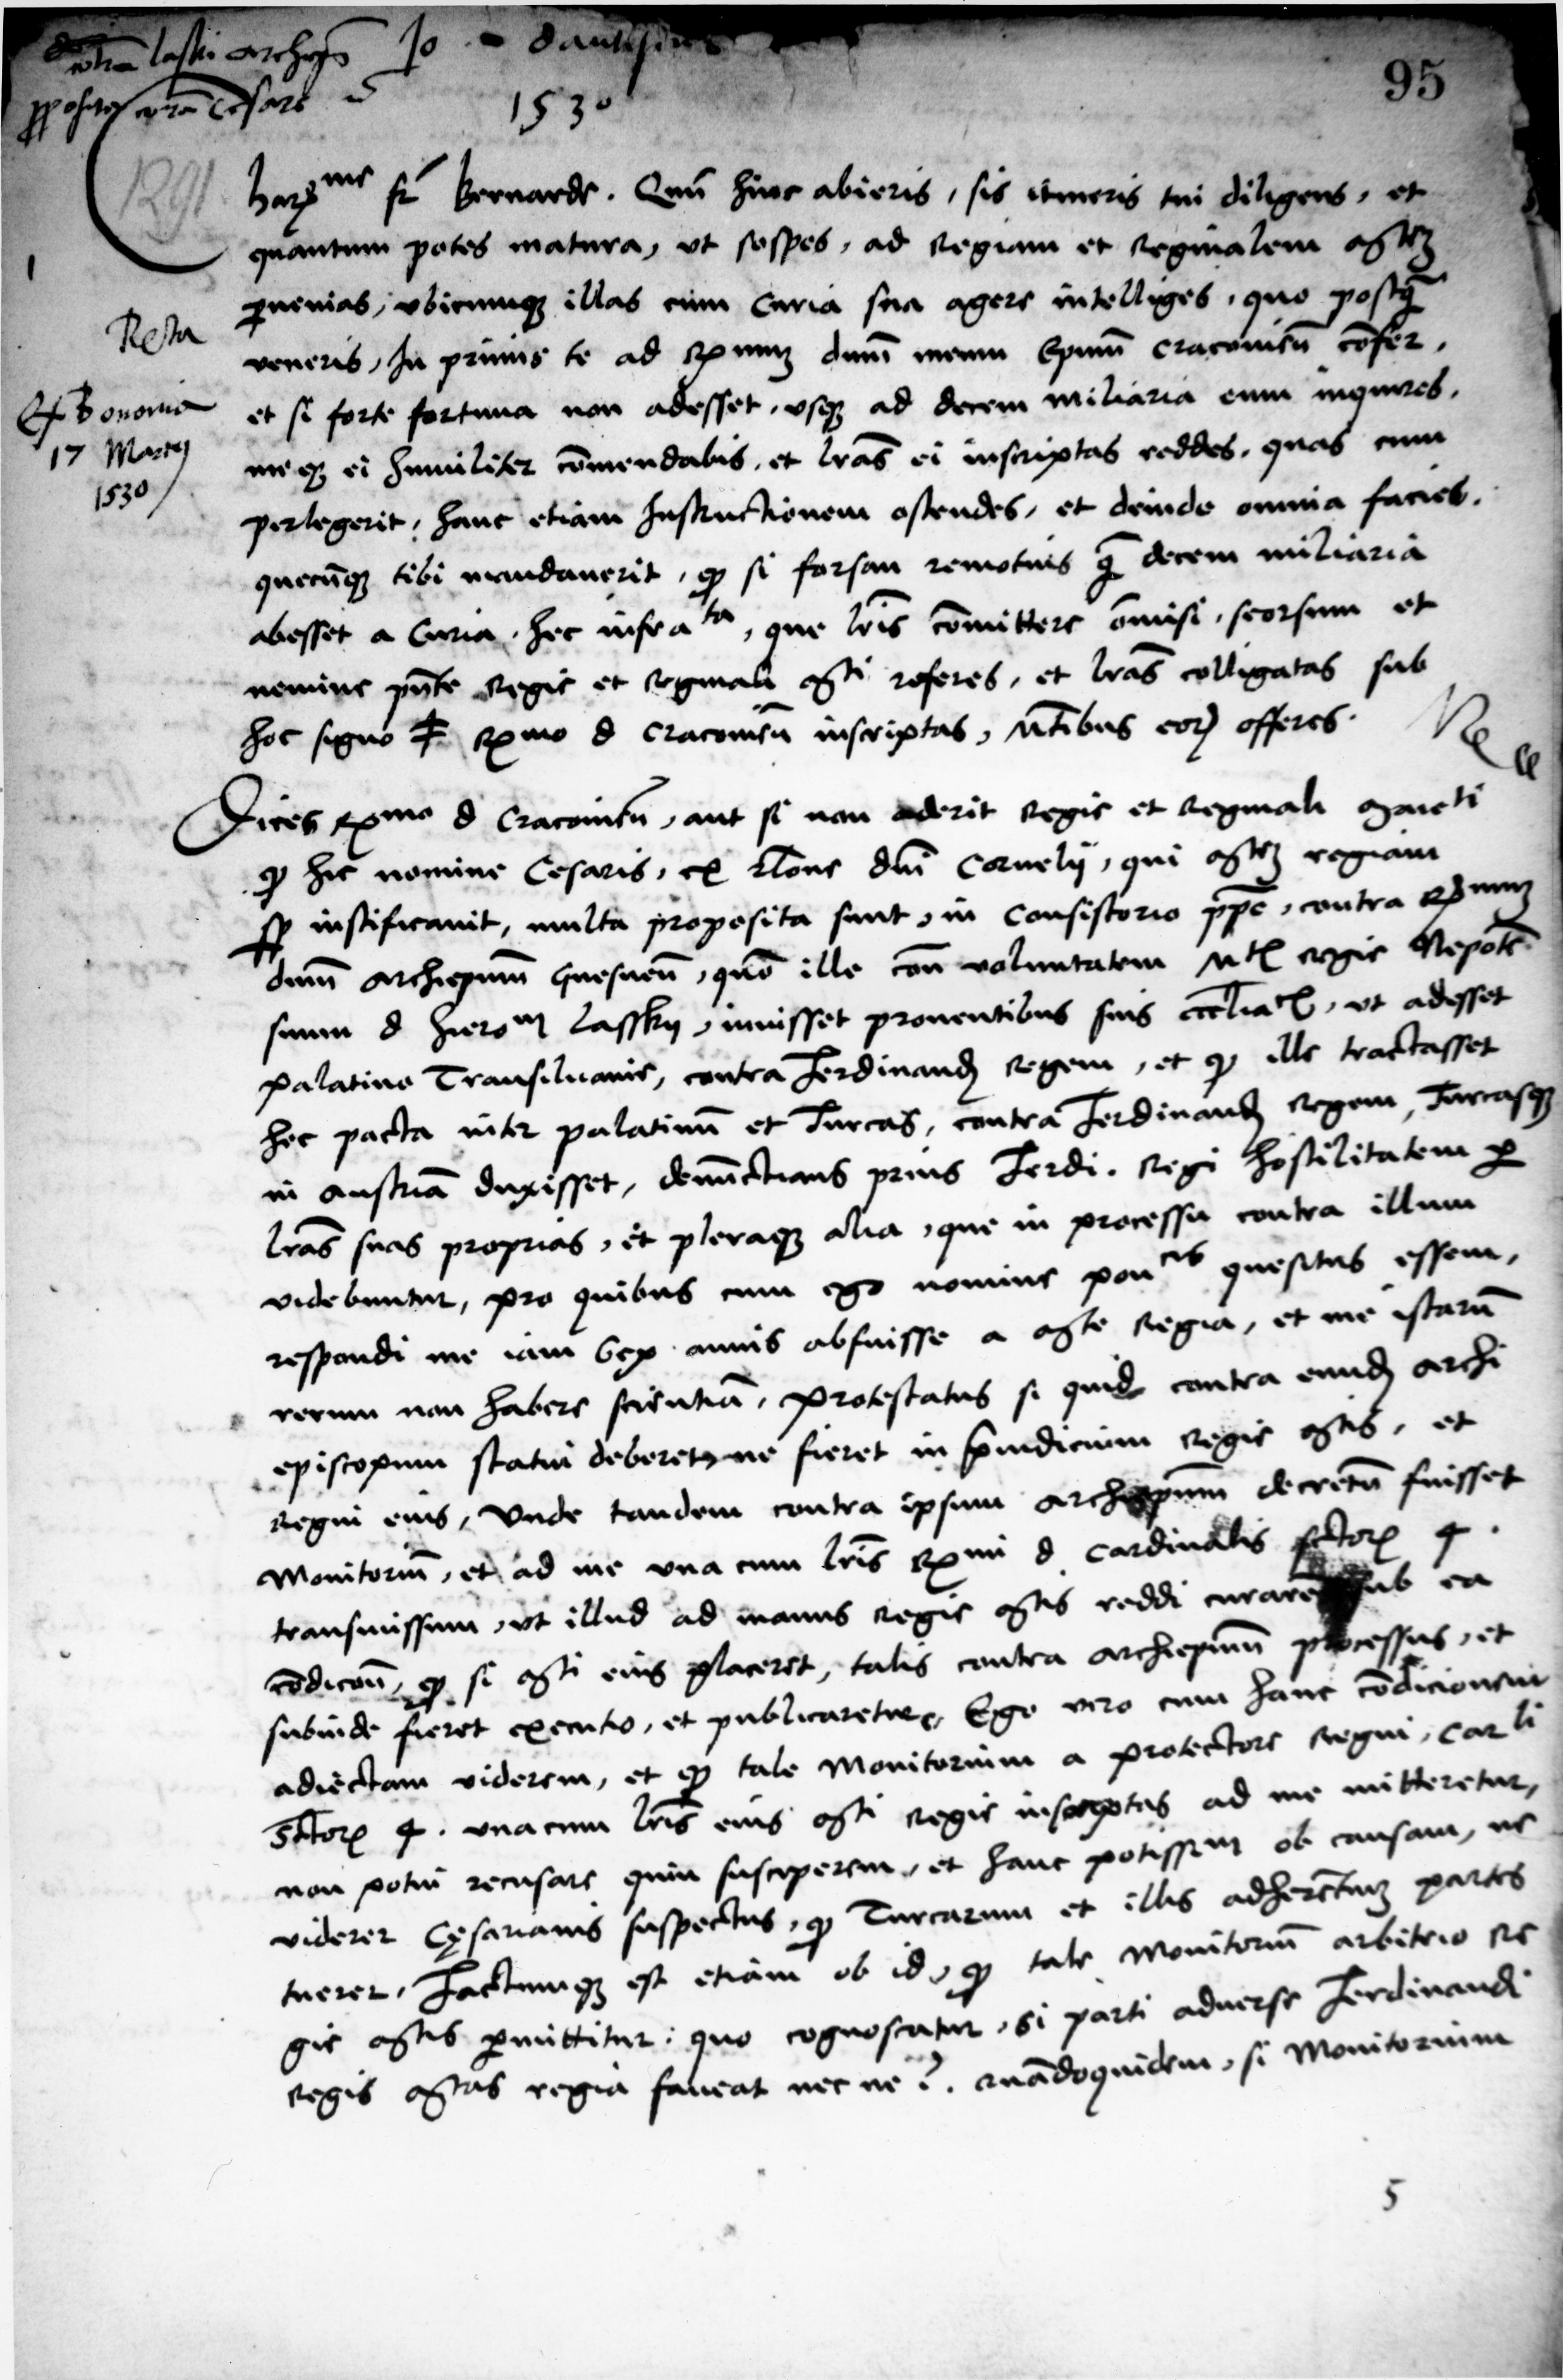 contra laski archiepm Jo dantiscus
pposita coram Cesare
1530
95
1291
1
Recta
Ex Bononia
17 Martij
1530
har^me fr Bernarde. Qum hinc abieris, sis itineris tui diligens, et
quantum potes matura, vt sospes, ad Regiam et Reginalem Mtem
pvenias, vbicunque illas cum Curia sua agere intelliges, quo postq
veneris, In primis te ad R^mum dnum meum Epum Cracovien confer,
et si forte fortuna non adesset, vsque ad decem miliaria eum inquires,
meque ei humiliter comendabis, et lras ei inscriptas reddes, quas cum
perlegerit, hanc etiam Instructionem ostendes, et deinde omnia facies,
quecunque tibi mandaverit, q si forsan remotius q decem miliaria
abesset a Curia, hec infra^ta, que lris comittere omisi, seorsum et
nemine pnte Regie et Reginali Mti referes, et lras colligatas sub
hoc signo ‡ R^mo d Cracovien inscriptas, Mtibus eor offeres.
Dices R^mo d Cracovien, aut si non aderit Regie et Reginali Maie^ti
q hic nomine Cesaris, ex rlone dni Cornelij, qui Mtem regiam
sp iustificavit, multa proposita sunt, in Consistorio ppe, contra R^mum
dnum Archiepum Gnesnen, quo ille con voluntatem Mtis regie Nepote
suum d Hiero^m Lassky, iuvisset proventibus suis eccliasticis, vt adesset
palatino Transilvanie, contra Ferdinand Regem, et q ille tractasset
hec pacta inter palatinu et Turcas, contra Ferdinand Regem, Turcasque
in Austria duxisset, denunctians prius Ferdi. Regi hostilitatem p
lras suas proprias, et pleraque alia, que in processu contra illum
videbuntur, pro quibus cum ego nomine pon^cis quesitus essem,
respondi me iam sex annis abfuisse a Mte Regia, et me istaru
rerum non habere scientia, Protestatus si quid contra eund Archi
episcopum statui deberet, ne fieret in piudicium Regie Mtis, et
Regni eius, Vnde tandem contra ipsum Archiepum decretu fuisset
Monitoriu, et ad me vna cum lris R^mi d Cardinalis sctor 4.
transmissum, vt illud ad manus Regie Mtis reddi curare sub ea
condicon, q si Mti eius placeret, talis contra Archiepum processus, et
subinde fieret executio, et publicaretur, Ego vero cum hanc condicionem
adiectam viderem, et q tale Monitorium a protectore Regni, Car^li
Sctor 4. vna cum lris eius Mti Regie inscriptas ad me mitteretur,
non potui recusare quin susciperem, et hanc potissem ob causam, ne
viderer Cesarianis suspectus, q Turcarum et illis adherentium partes
tuerer, Factumque est etiam ob id, q tale Monitoriu arbitrio Re
gie Mtis pmittitur: quo cognoscatur, si parti adverse Ferdinandi
Regis Mtas regia faveat nec ne?. Quandoquidem, si Monitorium
5